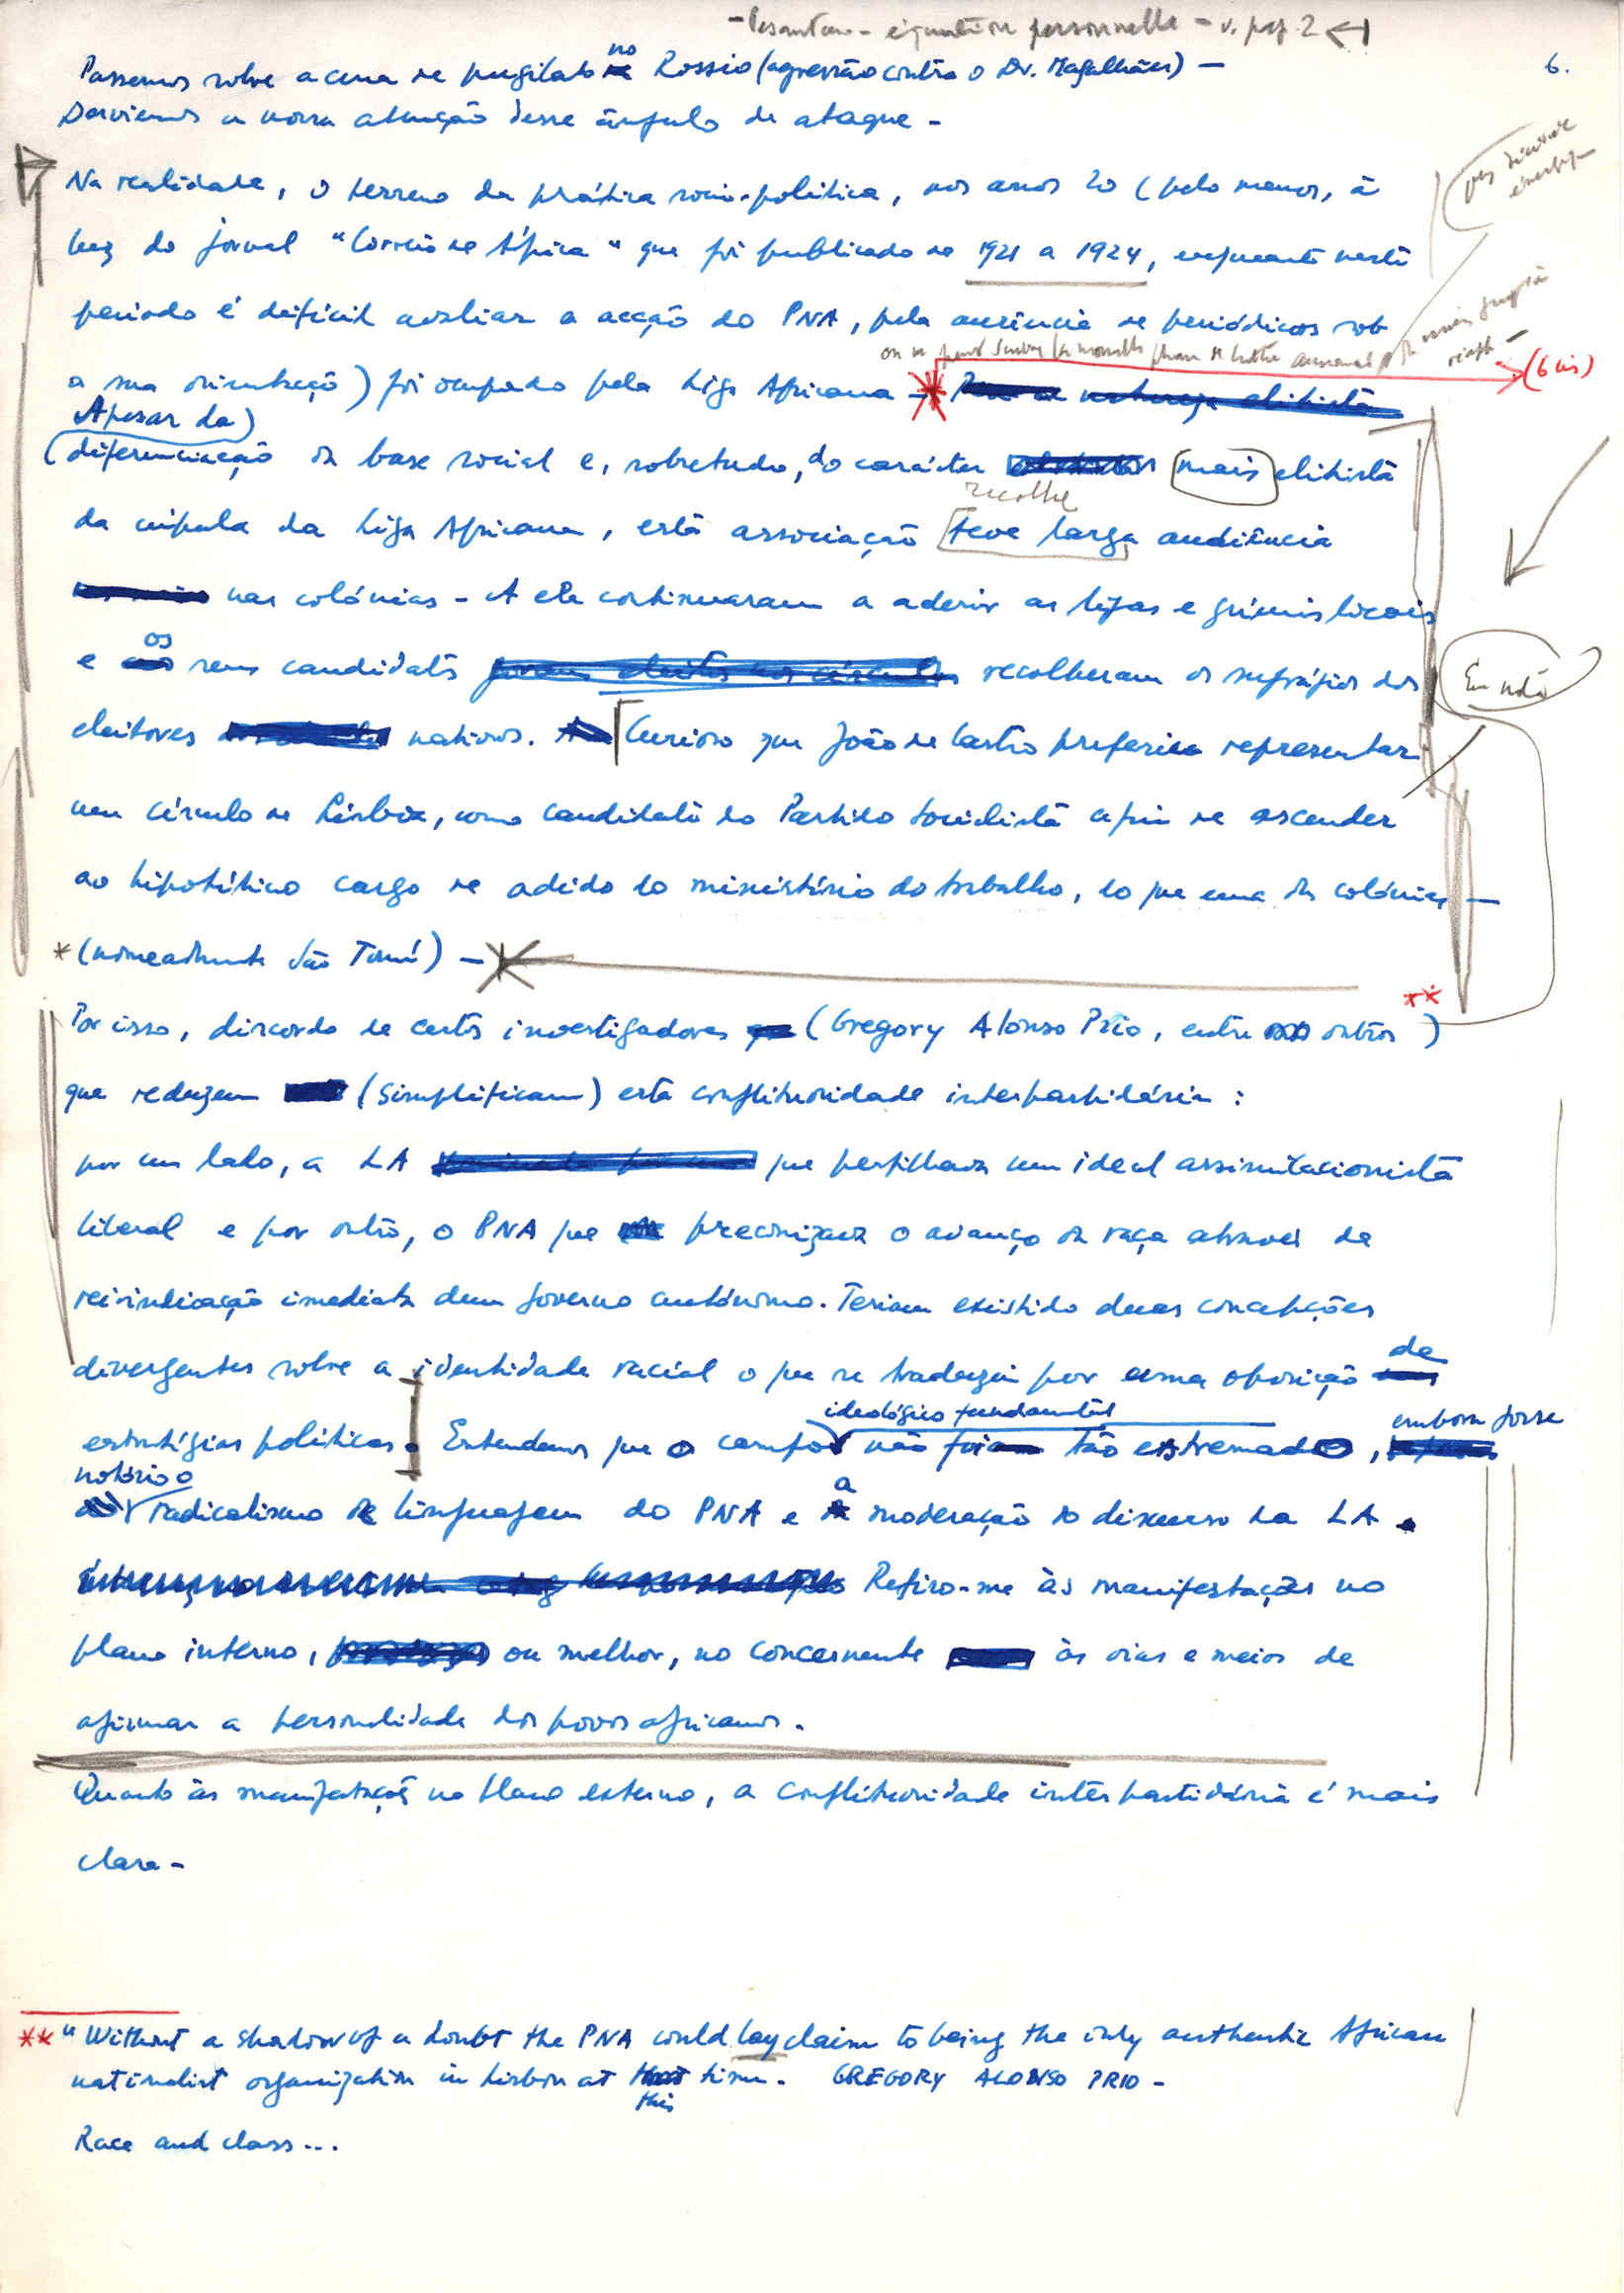 équation personnelle - v. pag. 2
6.
Passemos sobre a cena de pugilato no Rossio (agressão contra o Dr. Magalhães) -
Desviemos a nossa atenção desse ângulo de ataque -
Na realidade, o terreno da prática socio-política, nos anos 20 (pelo menos, à
luz do jornal "Correio de África" que foi publicado de 1921 a 1924, enquanto neste
período é difícil avaliar a acção do PNA, pela ausência de periódicos sob
a sua orientação) foi ocupado pela Liga Africana - * (6 bis)
Apesar da
diferenciação da base social e, sobretudo, do carácter mais elitista
recolhe
da cúpula da Liga Africana, esta associação teve larga audiência
nas colónias - A ela continuaram a aderir as ligas e grémios locais
e os seus candidatos recolheram os sufrágios dos
eleitores nativos. Curioso que João de Castro preferisse representar
um círculo de Lisboa, como candidato do Partido Socialista a fim de ascender
ao hipotético cargo de adido do ministério do trabalho, do que uma das colónias -
* (nomeadamente São Tomé) -
**
Por isso, discordo de certos investigadores (Gregory Alonso Prio, entre outros)
que reduzem (simplificam) esta conflituosidade interpartidária :
por um lado, a LA que perfilhava um ideal assimilacionista
liberal e por outro, o PNA que preconizava o avanço da raça através da
reivindicação imediata dum governo autónomo. Teriam existido duas concepções
divergentes sobre a identidade racial o que se traduziu por uma oposição de
estratégias políticas. Entendemos que o campo ideológico fundamental não foi tão extremado, embora fosse
notório o
radicalismo de linguagem do PNA e a moderação do discurso da LA.
Refiro-me às manifestações no
plano interno, ou melhor, no concernente às vias e meios de
afirmar a personalidade dos povos africanos.
Quanto às manifestações no plano externo, a conflituosidade inter partidária é mais
clara -
** "Without a shadow of a doubt the PNA could lay claim to being the only authentic African
nationalist organization in Lisbon at this time. GREGORY ALONSO PRIO -
Race and class...